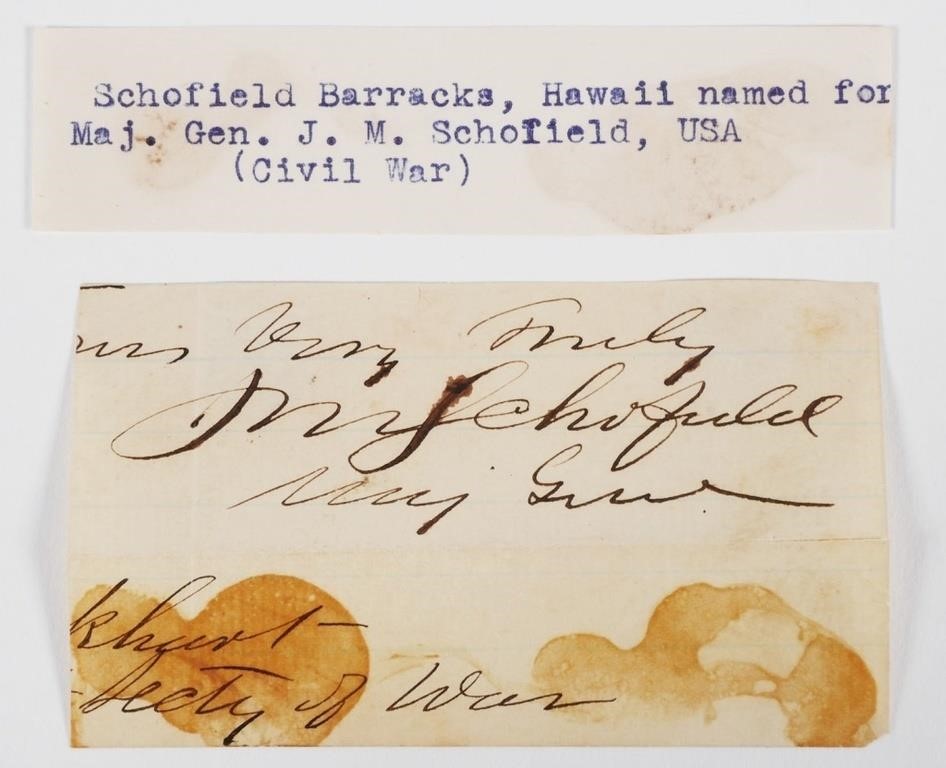 Schofield Barracks, Hawaii named for
Maj. Gen. J. M. Schofield, USA
(Civil War)
Very Truly
JM Schofield
Maj Genl
khart
Secty of War